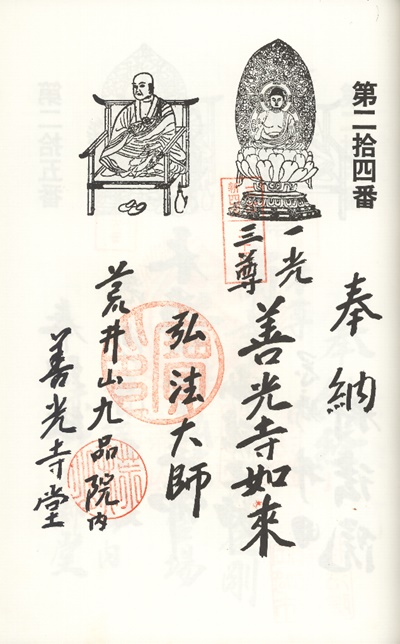 第二拾四番
奉納
一光
三尊
善光寺如來
弘法大師
荒井山九品院内
善光寺堂